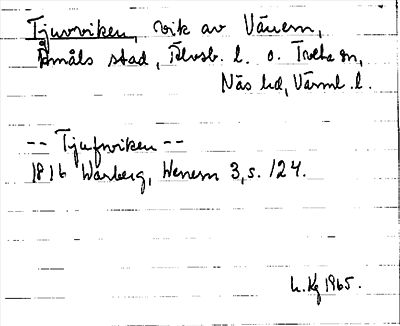 Tjuvviken, vik av Vänern,
Åmåls stad, Älvsb. l. o. Trolta sn,
Näs hd, Värml. l.
-- Tjufwiken --
1816 Warberg, Wenern 3, s. 124.
L. Kg 1965.